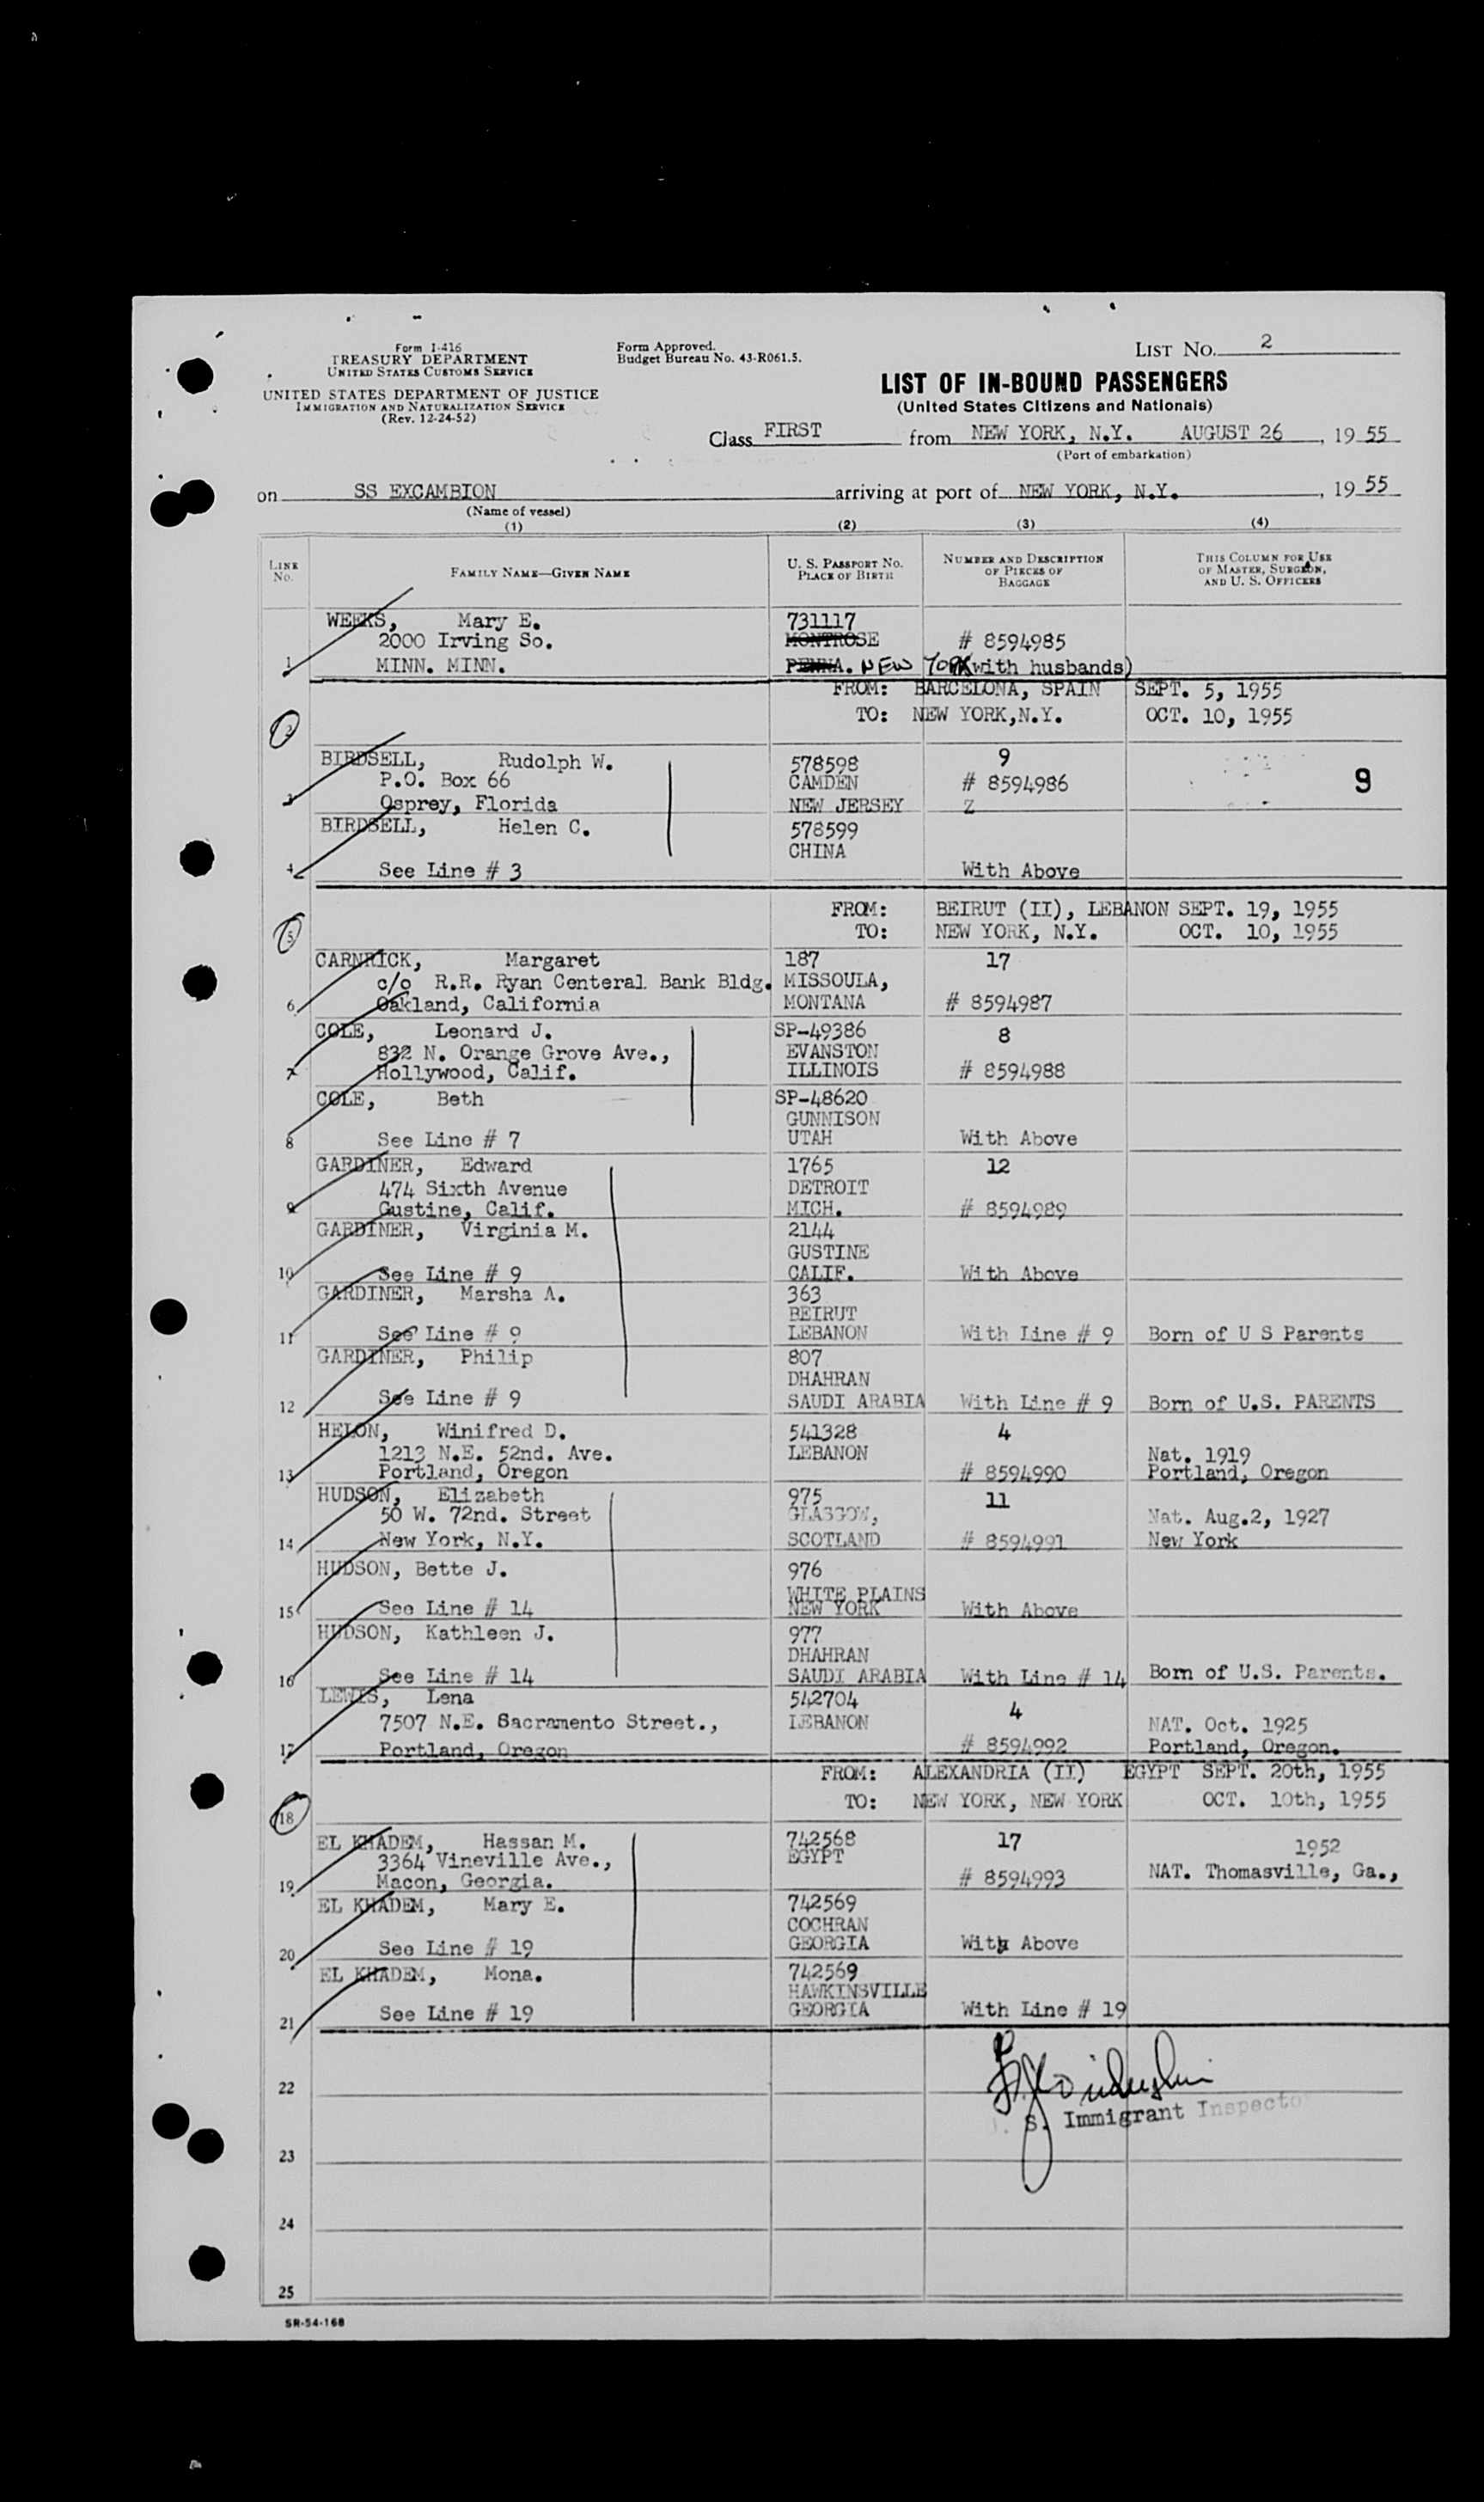 Form I-416
TREASURY DEPARTMENT
UNITED STATES CUSTOMS SERVICE
UNITED STATES DEPARTMENT OF JUSTICE
IMMIGRATION AND NATURALIZATION SERVICE
(Rev. 12-24-52)
Form Approved.
Budget Bureau No. 43-R061.5.
LIST NO. 2
LIST OF IN-BOUND PASSENGERS
(United States Citizens and Nationals)
Class FIRST from NEW YORK, N.Y. AUGUST 26, 1955
(Port of embarkation)
on SS EXCAMBION arriving at port of NEW YORK, N.Y., 1955
(Name of vessel)
(1) (2) (3) (4)
LINE NO.
FAMILY NAME—GIVEN NAME
U. S. PASSPORT NO.
PLACE OF BIRTH
NUMBER AND DESCRIPTION
OF PIECES OF
BAGGAGE
THIS COLUMN FOR USE
OF MASTER, SURGEON,
AND U. S. OFFICERS
WEEKS, Mary E. 731117
2000 Irving So. MONTROSE # 8594985
1 MINN. MINN. PENNA. NEW YORK with husbands)
FROM: BARCELONA, SPAIN SEPT. 5, 1955
2 TO: NEW YORK,N.Y. OCT. 10, 1955
BIRDSELL, Rudolph W. 578598 9
P.O. Box 66 CAMDEN # 8594986 9
3 Osprey, Florida NEW JERSEY Z
BIRDSELL, Helen C. 578599
CHINA
4 See Line # 3 With Above
FROM: BEIRUT (II), LEBANON SEPT. 19, 1955
5 TO: NEW YORK, N.Y. OCT. 10, 1955
CARNRICK, Margaret 187 17
c/o R.R. Ryan Centeral Bank Bldg. MISSOULA,
6 Oakland, California MONTANA # 8594987
COLE, Leonard J. SP-49386 8
832 N. Orange Grove Ave., EVANSTON
7 Hollywood, Calif. ILLINOIS # 8594988
COLE, Beth SP-48620
GUNNISON
8 See Line # 7 UTAH With Above
GARDINER, Edward 1765 12
474 Sixth Avenue DETROIT
9 Gustine, Calif. MICH. # 8594989
GARDINER, Virginia M. 2144
GUSTINE
10 See Line # 9 CALIF. With Above
GARDINER, Marsha A. 363
BEIRUT
11 See Line # 9 LEBANON With Line # 9 Born of U S Parents
GARDINER, Philip 807
DHAHRAN
12 See Line # 9 SAUDI ARABIA With Line # 9 Born of U.S. PARENTS
HELON, Winifred D. 541328 4
1213 N.E. 52nd. Ave. LEBANON Nat. 1919
13 Portland, Oregon # 8594990 Portland, Oregon
HUDSON, Elizabeth 975 11
50 W. 72nd. Street GLASGOW, Nat. Aug.2, 1927
14 New York, N.Y. SCOTLAND # 8594991 New York
HUDSON, Bette J. 976
WHITE PLAINS
15 See Line # 14 NEW YORK With Above
HUDSON, Kathleen J. 977
DHAHRAN
16 See Line # 14 SAUDI ARABIA With Line # 14 Born of U.S. Parents.
LEWIS, Lena 542704 4
7507 N.E. Sacramento Street., LEBANON NAT. Oct. 1925
17 Portland, Oregon # 8594992 Portland, Oregon.
FROM: ALEXANDRIA (II) EGYPT SEPT. 20th, 1955
18 TO: NEW YORK, NEW YORK OCT. 10th, 1955
EL KHADEM, Hassan M. 742568 17 1952
3364 Vineville Ave., EGYPT
19 Macon, Georgia. # 8594993 NAT. Thomasville, Ga.,
EL KHADEM, Mary E. 742569
COCHRAN
20 See Line # 19 GEORGIA With Above
EL KHADEM, Mona. 742569
HAWKINSVILLE
21 See Line # 19 GEORGIA With Line # 19
22
S. Immigrant Inspector
23
24
25
SR-54-168